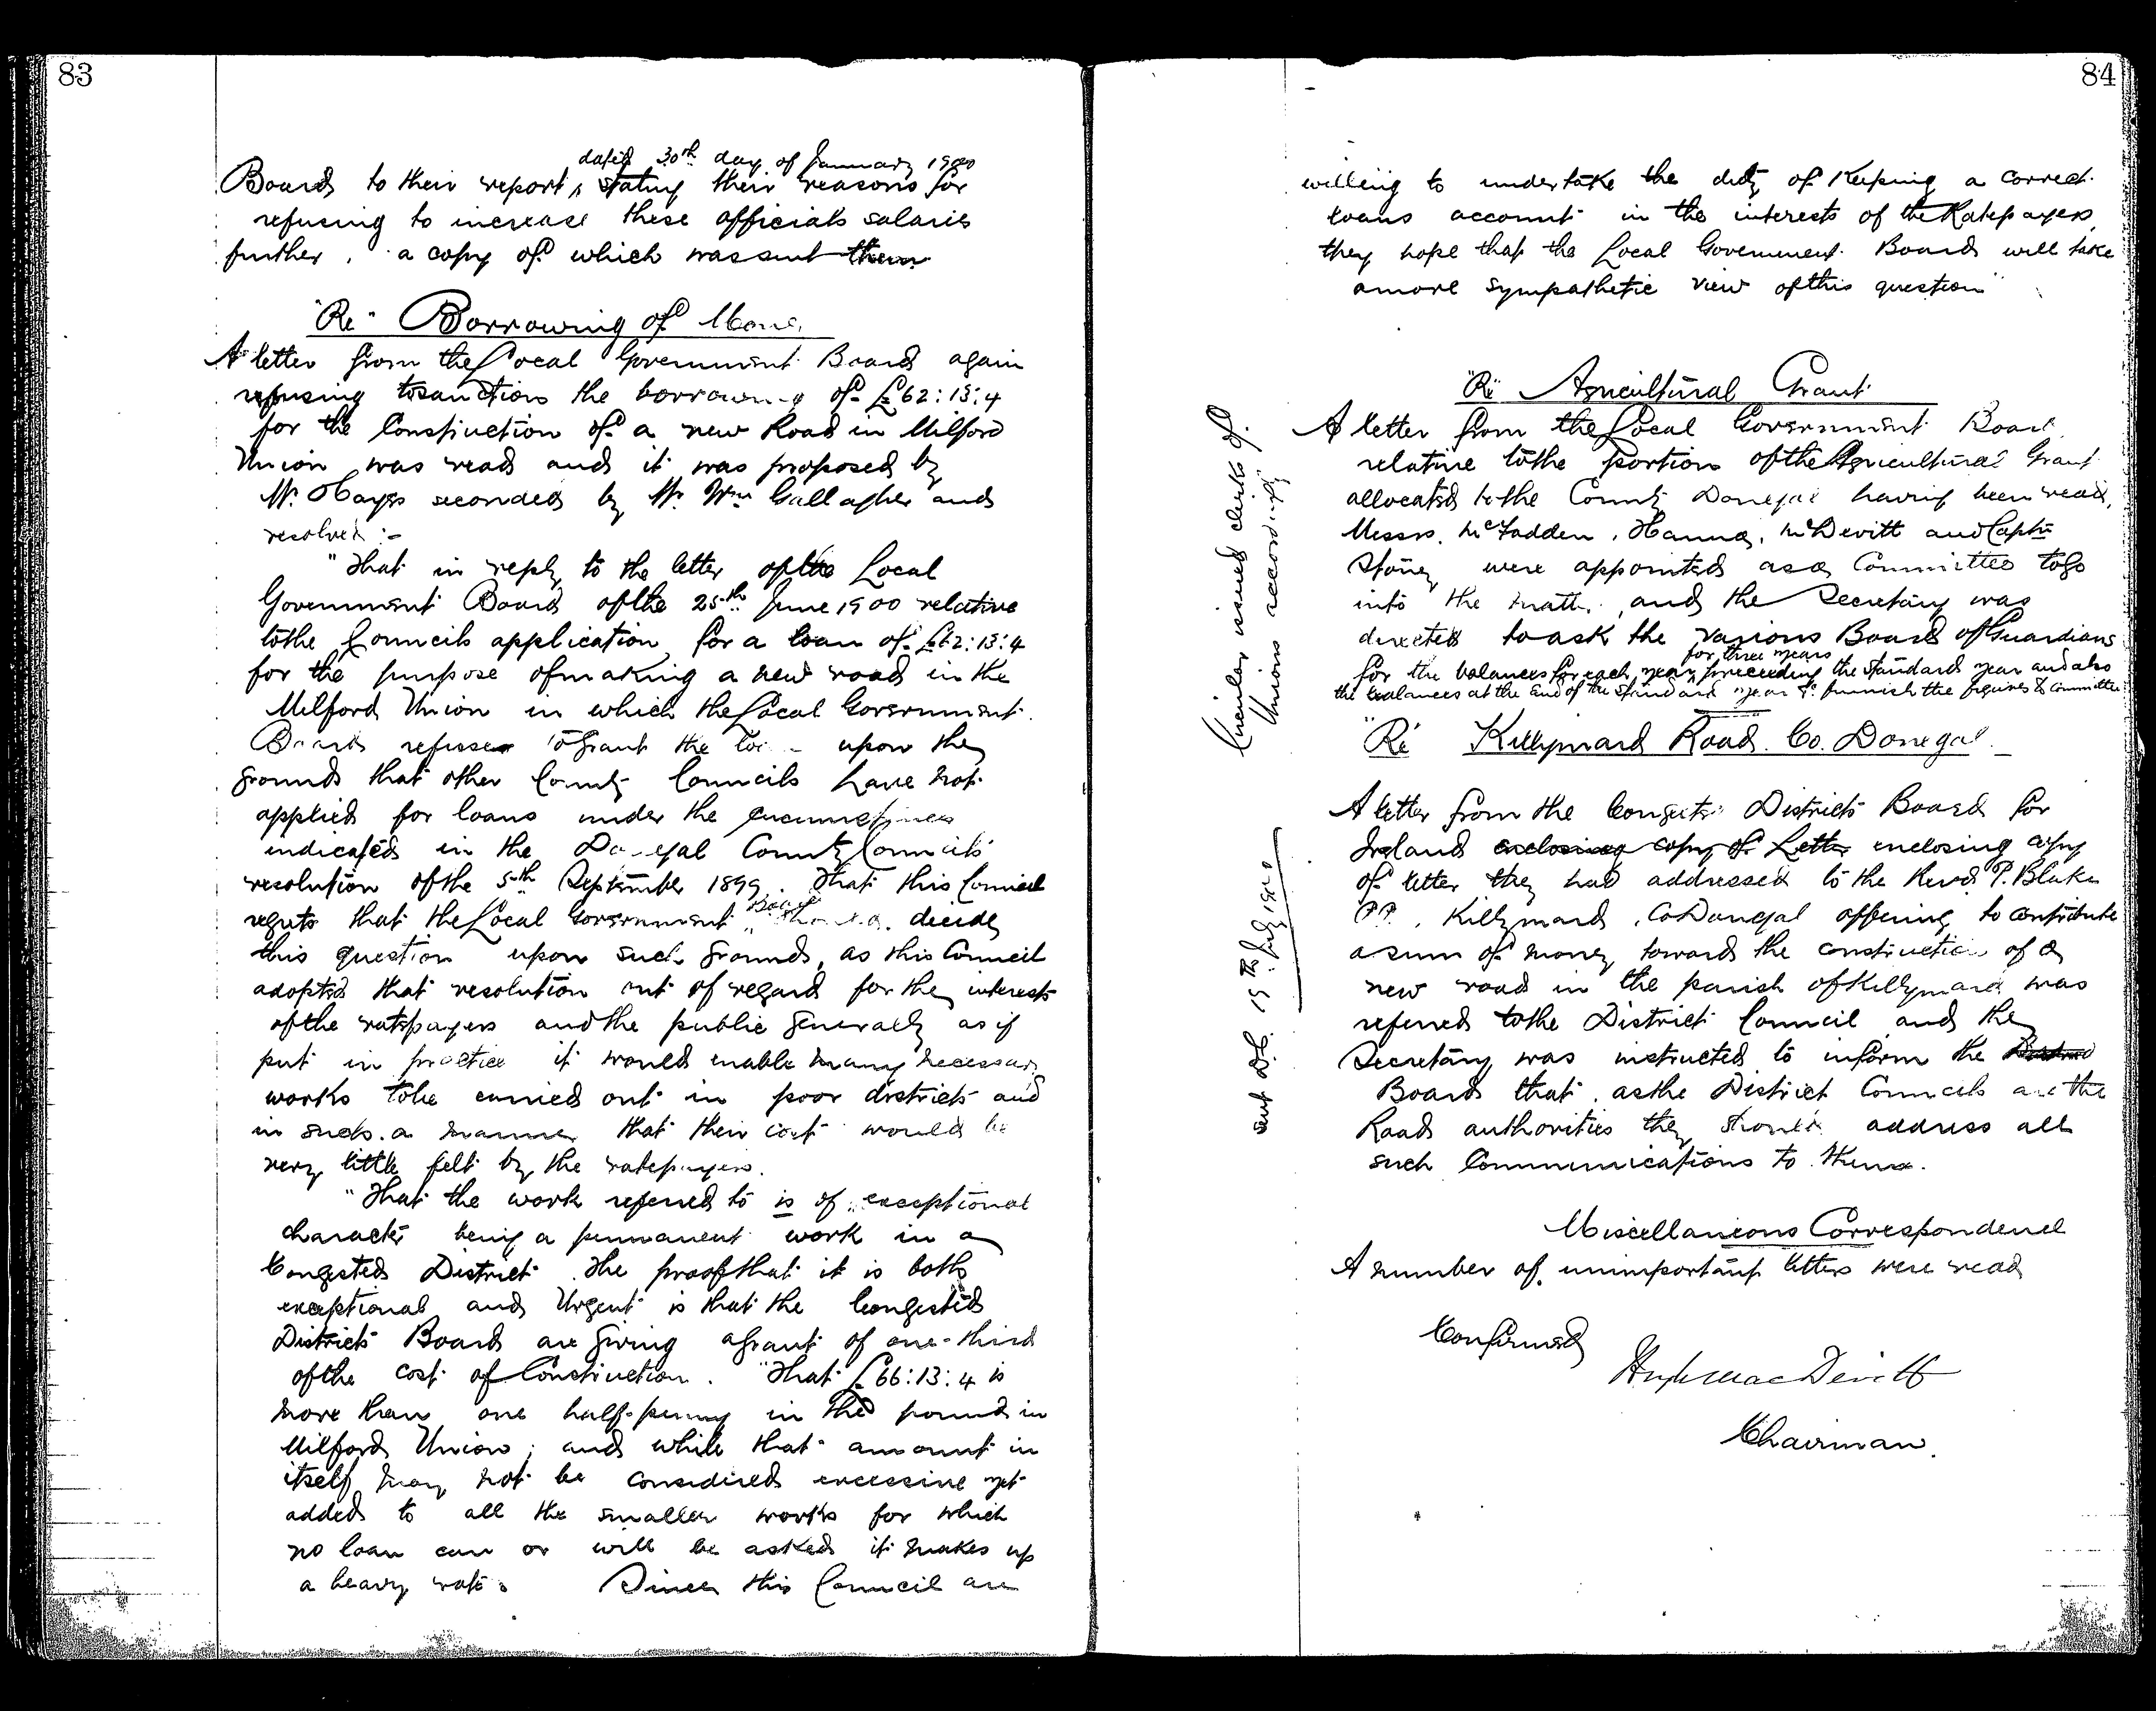 83
dated 30th day of January 1900
Board to their report, stating their reasons for
refusing to increase these officials salaries
further, a copy of which was sent them
"Re" Borrowing of
A letter from the Local Government Board again
refusing to sanction the borrowing of £62:13:4
for the Construction of a new Road in Milford
Union was read and it was proposed by
Mr. Hayes seconded by Mr. Wm Gallagher and
resolved :-
"That in reply to the letter of the Local
Government Board of the 25th June 1900 relative
to the Councils application for a loan of £62:13:4
for the purpose of making a new road in the
Milford Union in which the Local Government
Board refuses to grant the loan upon the
grounds that other County Councils have not
applied for loans under the circumstances
indicated in the Donegal County Councils
resolution of the 5th September 1899. That this Council
regrets that the Local Government Board should decide
this question upon such grounds, as this Council
adopted that resolution out of regard for the interests
of the ratepayers and the public generally as if
put in practice it would enable many necessary
works to be carried out in poor districts and
in such a manner that their cost would be
very little felt by the ratepayers.
"That the work referred to is of exceptional
character being a permanent work in a
Congested District. The proof that it is both
exceptional and Urgent is that the Congested
Districts Board are giving a grant of one-third
of the cost of Construction. "That £66:13:4 is
more than one half-penny in the pound in
Milford Union; and while that amount in
itself may not be considered excessive yet
added to all the smaller works for which
no loan can or will be asked it makes up
a heavy rate. Since this Council are
84
willing to undertake the duty of Keeping a correct
loans account in the interests of the Ratepayers,
they hope that the Local Government Board will take
a more sympathetic view of this question"
"Re" Agricultural Grant
A letter from the Local Government Board
relative to the portion of the Agricultural Grant
allocated to the County Donegal having been read,
Messrs. McFadden, Hanna, McDevitt and Captn
Stoney were appointed as a Committee to go
into the matter, and the Secretary was
directed to ask the various Boards of Guardians
for three years
for the balances for each year preceeding the standard year and also
the balances at the end of the Standard year & furnish the figures to Committee
Circular issued clerks of
Unions accordingly
"Re" Killymard Road. Co. Donegal
A letter from the Congested Districts Board for
Ireland enclosing copy of Letter enclosing copy
of letter they had addressed to the Revd P. Blake
P.P. Killymard, Co Donegal offering to contribute
a sum of money toward the construction of a
new road in the parish of Killymard was
referred to the District Council and the
Secretary was instructed to inform the
Board that, as the District Councils are the
Road authorities they should address all
such Communications to them.
sent D.C. 19th July 1900
Miscellaneous Correspondence
A number of unimportant letters were read
Confirmed
Hugh MacDevitt
Chairman.